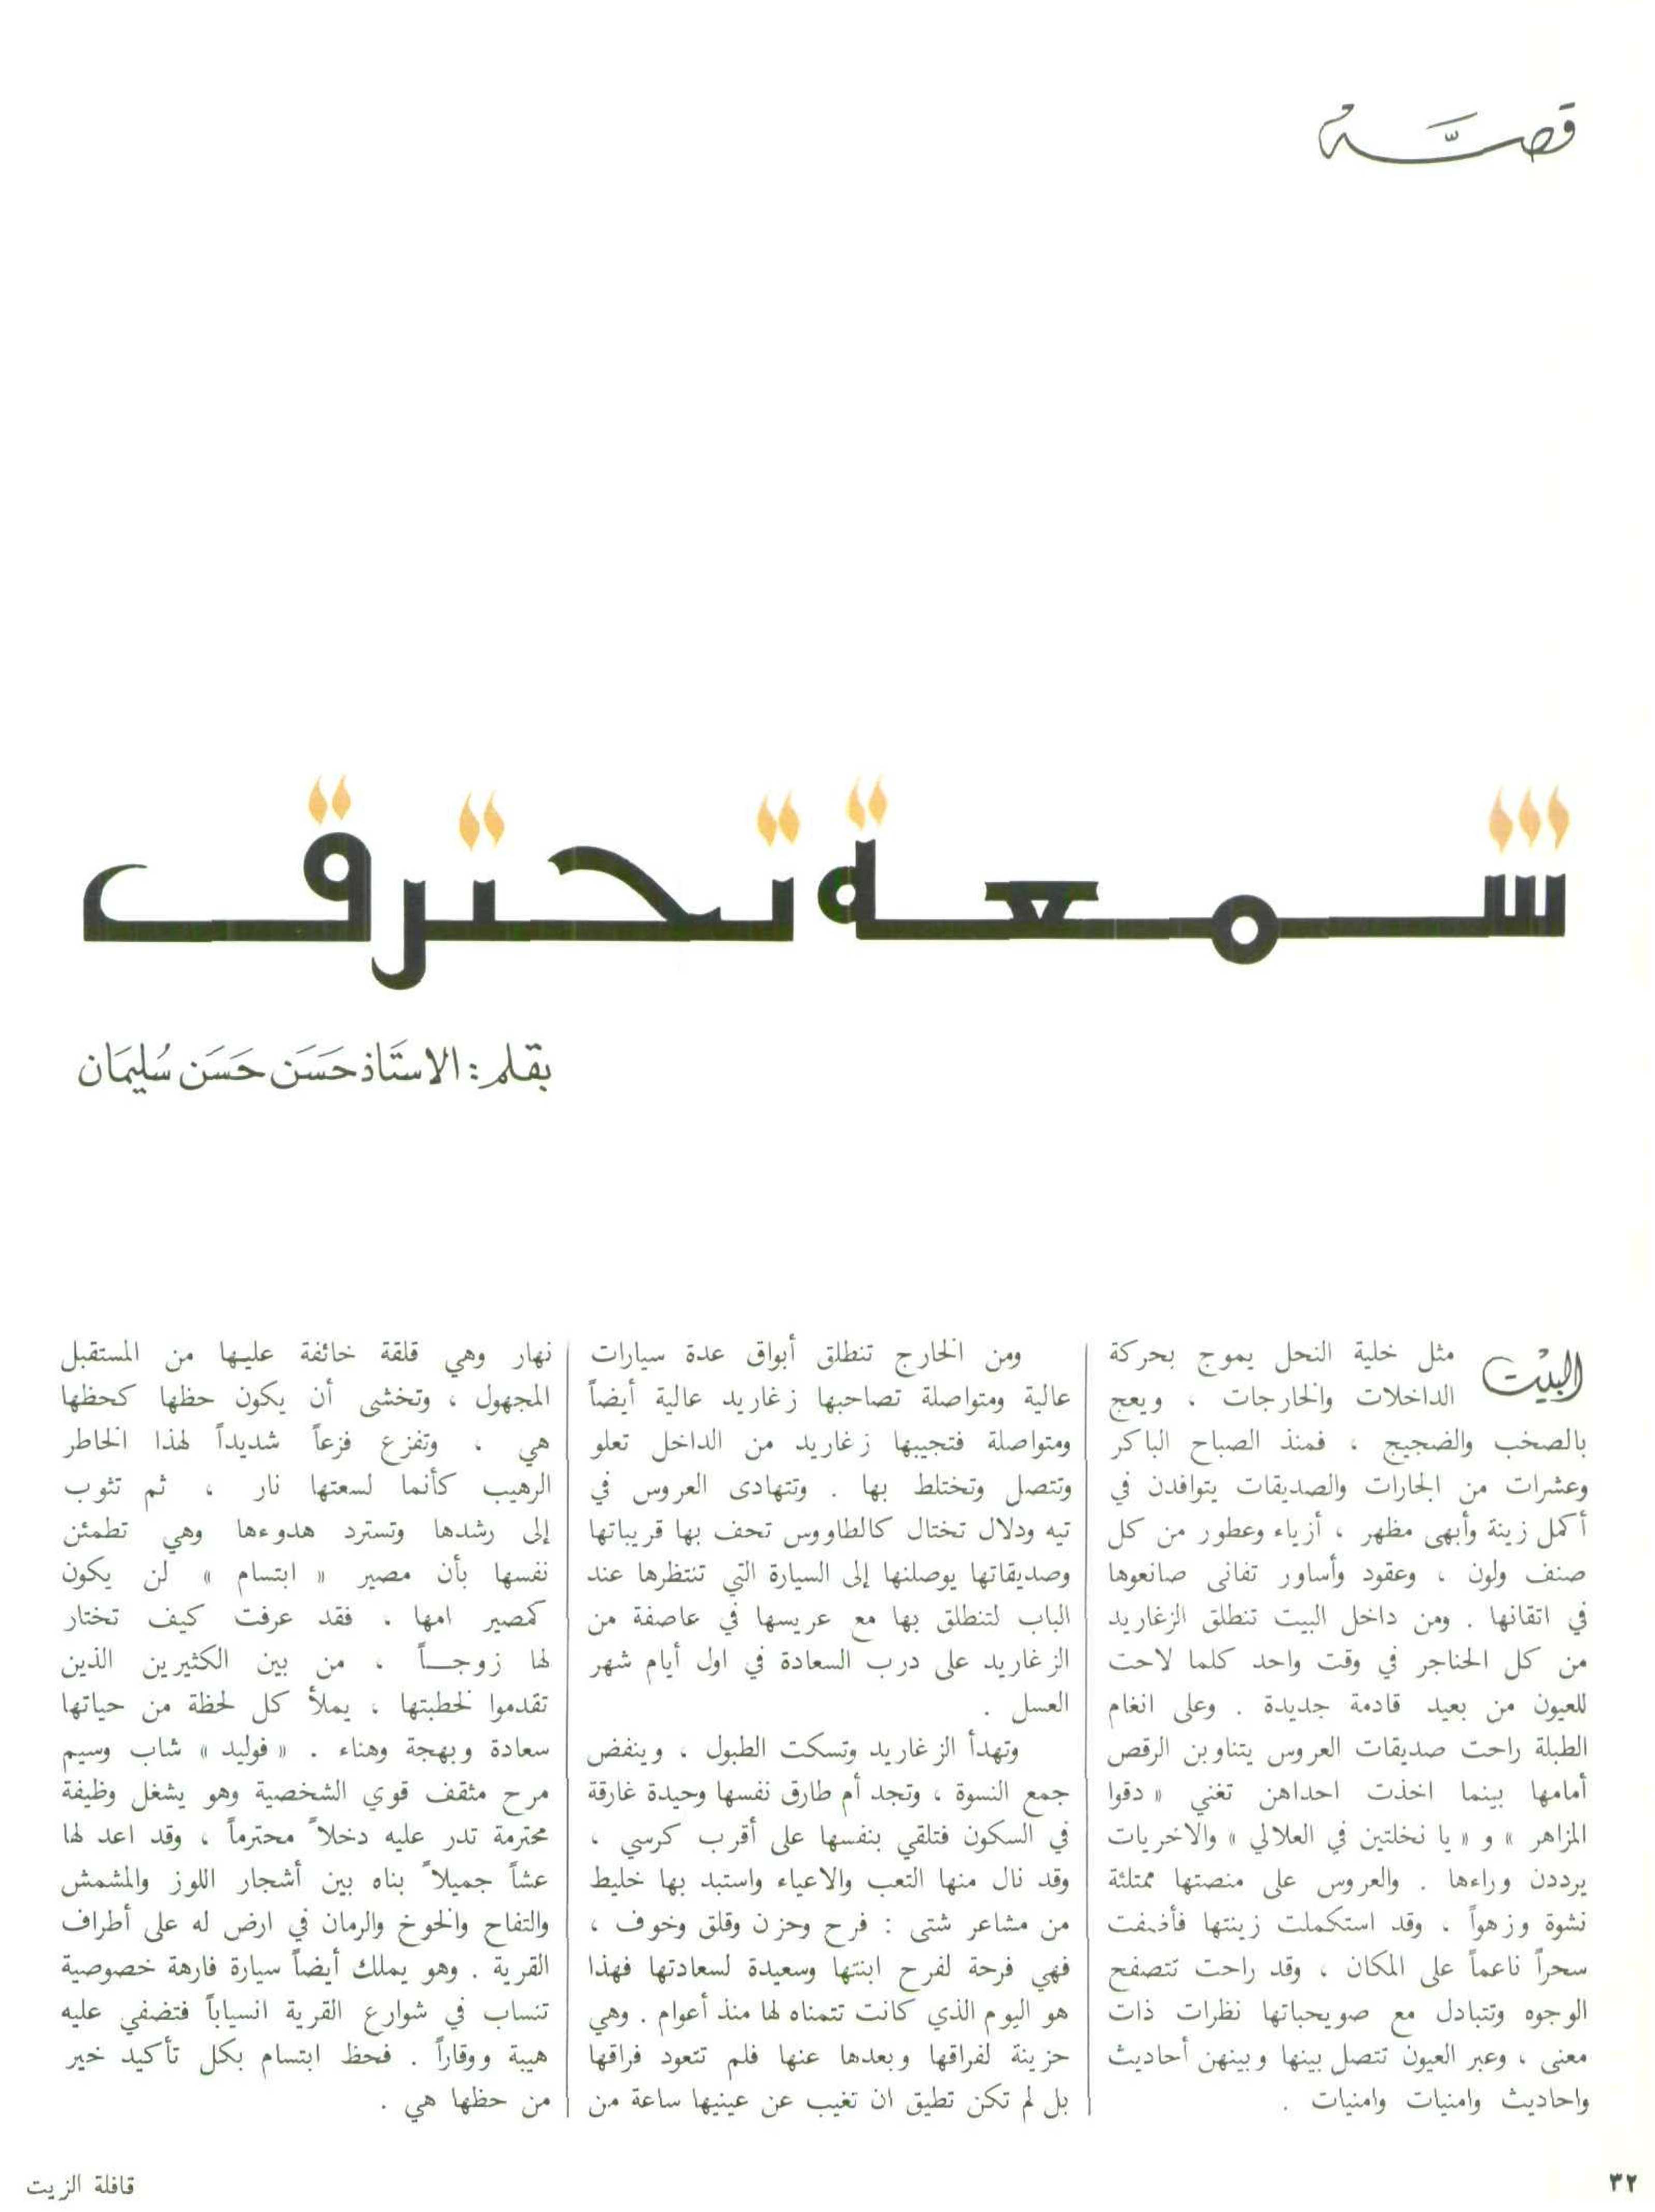 قصَّة
شمعة تحترق
بقلم: الاستَاذ حَسَن حَسَن سُليمَان
البيْت مثل خلية النحل يموج بحركة
الداخلات والخارجات ، ويعج
بالصخب والضجيج ، فمنذ الصباح الباكر
وعشرات من الجارات والصديقات يتوافدن في
أكمل زينة وأبهى مظهر ، أزياء وعطور من كل
صنف ولون ، وعقود وأساور تفانى صانعوها
في اتقانها . ومن داخل البيت تنطلق الزغاريد
من كل الحناجر في وقت واحد كلما لاحت
للعيون من بعيد قادمة جديدة . وعلى انغام
الطبلة راحت صديقات العروس يتناوبن الرقص
أمامها بينما اخذت احداهن تغني « دقوا
المزاهر » و « يا نخلتين في العلالي » والاخريات
يرددن وراءها . والعروس على منصتها ممتلئة
نشوة وزهواً ، وقد استكملت زينتها فأضفت
سحراً ناعماً على المكان ، وقد راحت تتصفح
الوجوه وتتبادل مع صويحباتها نظرات ذات
معنى ، وعبر العيون تتصل بينها وبينهن أحاديث
واحاديث وامنيات وامنيات .
ومن الخارج تنطلق أبواق عدة سيارات
عالية ومتواصلة تصاحبها زغاريد عالية أيضاً
ومتواصلة فتجيبها زغاريد من الداخل تعلو
وتتصل وتختلط بها . وتتهادى العروس في
تيه ودلال تختال كالطاووس تحف بها قريباتها
وصديقاتها يوصلنها إلى السيارة التي تنتظرها عند
الباب لتنطلق بها مع عريسها في عاصفة من
الزغاريد على درب السعادة في اول أيام شهر
العسل .
وتهدأ الزغاريد وتسكت الطبول ، وينفض
جمع النسوة ، وتجد أم طارق نفسها وحيدة غارقة
في السكون فتلقي بنفسها على أقرب كرسي ،
وقد نال منها التعب والاعياء واستبد بها خليط
من مشاعر شتى : فرح وحزن وقلق وخوف ،
فهي فرحة لفرح ابنتها وسعيدة لسعادتها فهذا
هو اليوم الذي كانت تتمناه لها منذ أعوام . وهي
حزينة لفراقها وبعدها عنها فلم تتعود فراقها
بل لم تكن تطيق ان تغيب عن عينيها ساعة من
نهار وهي قلقة خائفة عليها من المستقبل
المجهول ، وتخشى أن يكون حظها كحظها
هي ، وتفزع فزعاً شديداً لهذا الخاطر
الرهيب كأنما لسعتها نار ، ثم تثوب
إلى رشدها وتسترد هدوءها وهي تطمئن
نفسها بأن مصير « ابتسام » لن يكون
كمصير امها ، فقد عرفت كيف تختار
لها زوجـــاً ، من بين الكثيرين الذين
تقدموا لخطبتها ، يملأ كل لحظة من حياتها
سعادة وبهجة وهناء . « فوليد » شاب وسيم
مرح مثقف قوي الشخصية وهو يشغل وظيفة
محترمة تدر عليه دخلاً محترماً ، وقد اعد لها
عشاً جميلاً بناه بين أشجار اللوز والمشمش
والتفاح والخوخ والرمان في ارض له على أطراف
القرية . وهو يملك أيضاً سيارة فارهة خصوصية
تنساب في شوارع القرية انسياباً فتضفي عليه
هيبة ووقاراً . فحظ ابتسام بكل تأكيد خير
من حظها هي .
٣٢
قافلة الزيت